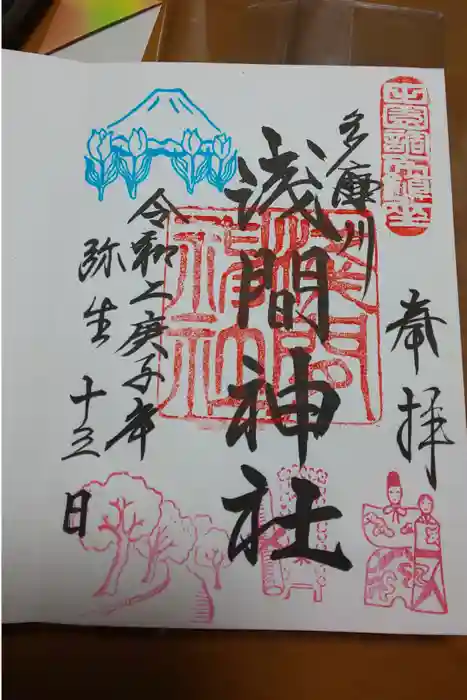 田園調布鎮座
奉拝
多摩川
浅間神社
淺間
神社
令和二庚子年
弥生十三日